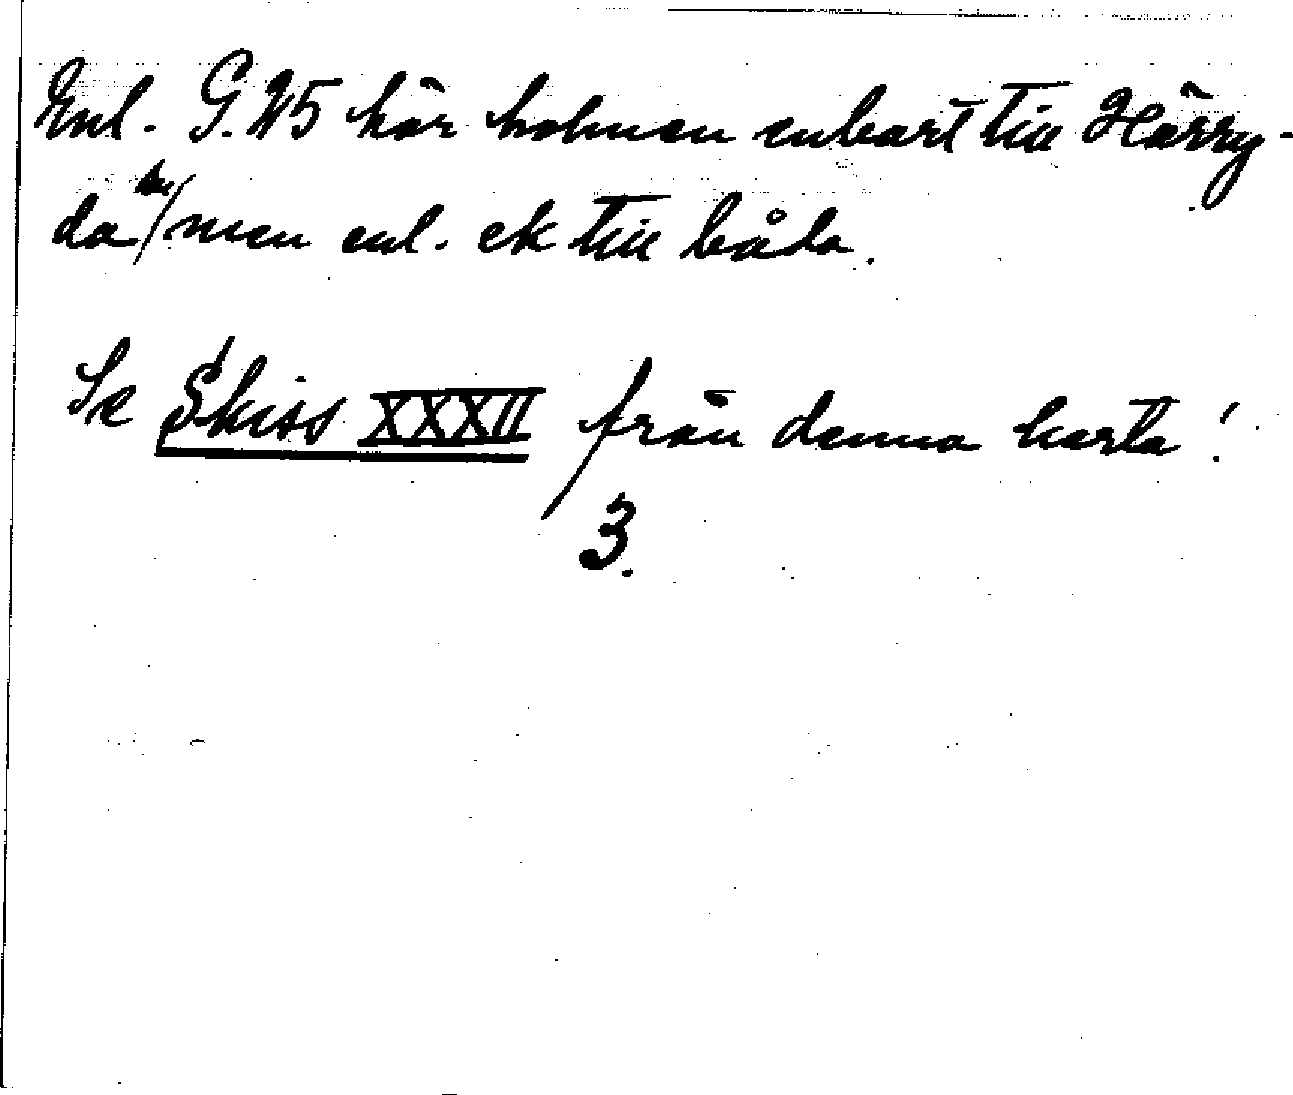 Enl. G. 45 hör holmen enbart till Härry-
da sn/men enl. ek till båda.
Se Skiss XXXII från denna karta!
3.